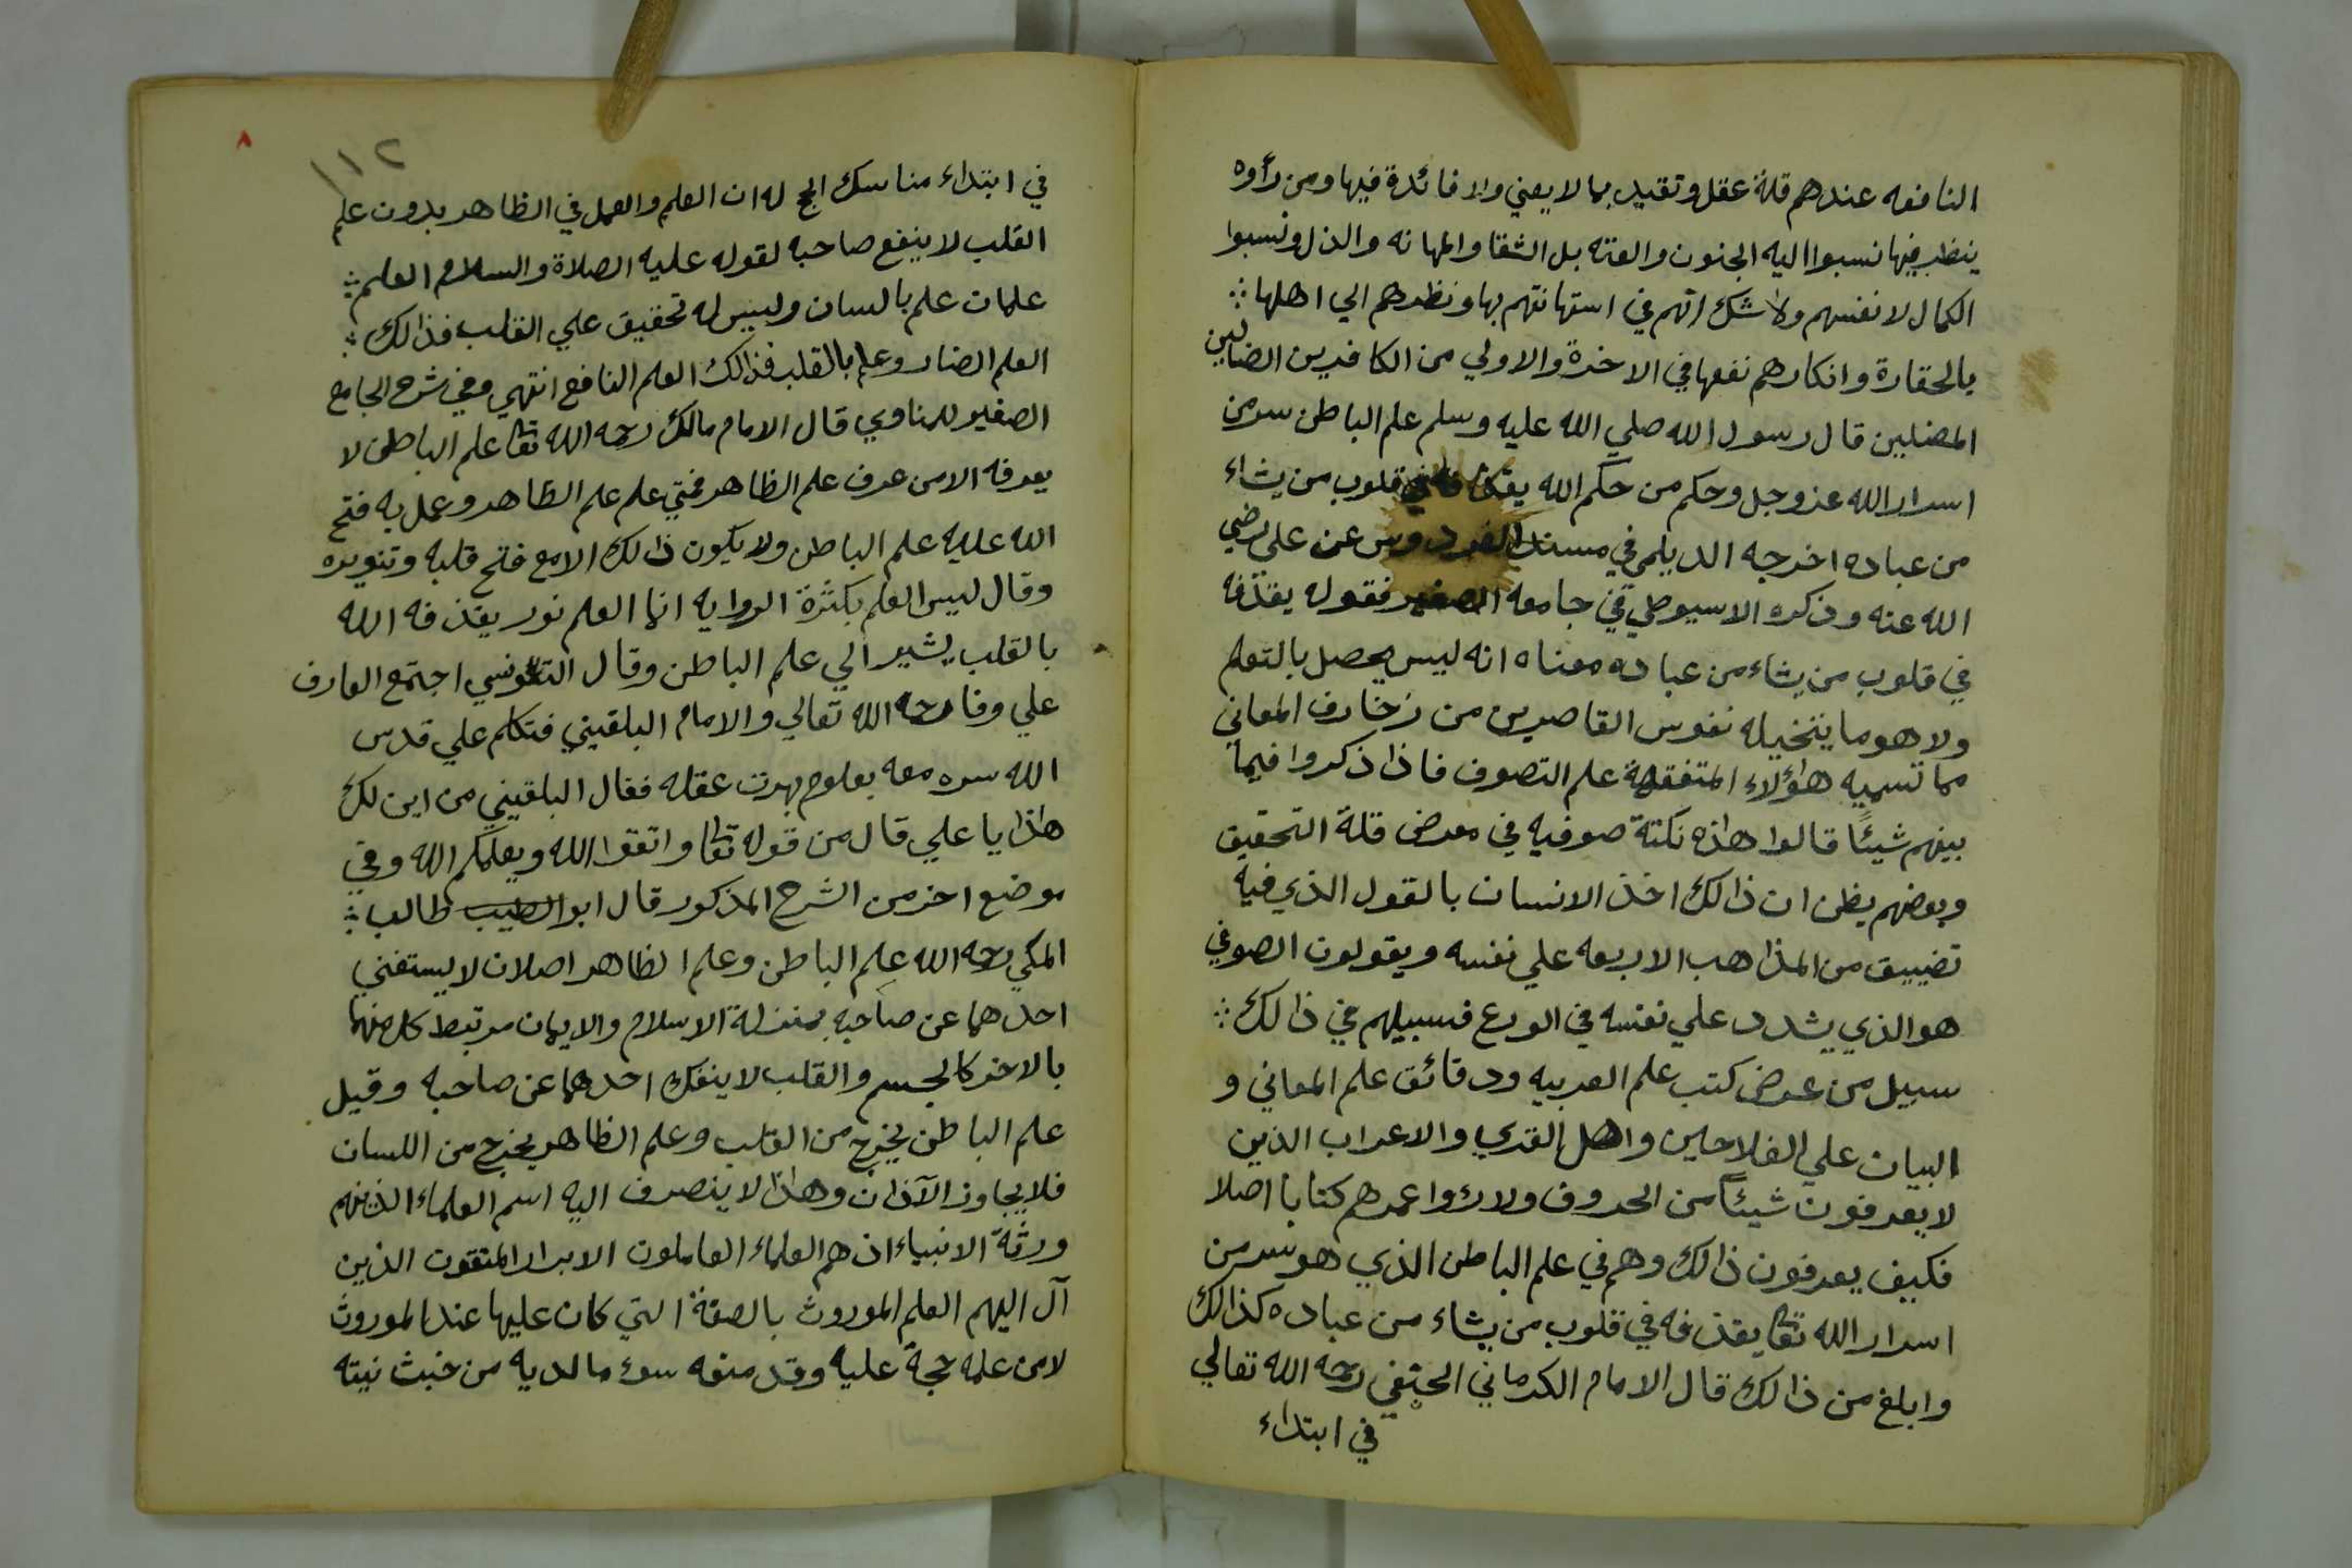 النافعه عندهم قلة عقل وتقيد بما لا يعني ولا فائدة فيها ومن رأوه
ينظر فيها نسبوا اليه الجنون والعته بل الشقا والمهانه والذل ونسبوا
الكمال لانفسهم ولا شك انهم في استهانتهم بها ونظرهم الي اهلها
بالحقارة وانكارهم نفعها في الاخرة والاولي من الكافرين الضالين
المضلين قال رسول الله صلي الله عليه وسلم علم الباطن سر من
اسرار الله عز وجل وحكم من حكم الله يقذفه في قلوب من يشاء
من عباده اخرجه الديلمي في مسند الفردوس عن علي رضي
الله عنه وذكره الاسيوطي في جامعه الصغير فقوله يقذفه
في قلوب من يشاء من عباده معناه انه ليس يحصل بالتعلم
ولا هو ما يتخيله نفوس القاصرين من زخارف المعاني
مما تسميه هاؤلاء المتفقهة علم التصوف فاذا ذكروا فيما
بينهم شيئًا قالوا هاذه نكتة صوفيه في معرض قلة التحقيق
وبعضهم يظن ان ذالك اخذ الانسان بالقول الذي فيه
تضييق من المذاهب الاربعه علي نفسه ويقولون الصوفي
هو الذي يشدد علي نفسه في الورع فسبيلهم في ذالك
سبيل من عرض كتب علم العربيه ودقائق علم المعاني و
البيان علي الفلاحين واهل القري والاعراب الذين
لا يعرفون شيئًا من الحروف ولا رؤا عمرهم كتابا اصلا
فكيف يعرفون ذالك وهم في علم الباطن الذي هو سر من
اسرار الله تعا يقذفه في قلوب من يشاء من عباده كذالك
وابلغ من ذالك قال الامام الكرماني الحنفي رحمه الله تعالي
في ابتداء
١١٢
٨
في ابتداء مناسك الحج له ان العلم والعمل في الظاهر بدون علم
القلب لا ينفع صاحبه لقوله عليه الصلاة والسلام العلم
علمان علم بالسان وليس له تحقيق علي القلب فذالك
العلم الضار وعلم بالقلب فذالك العلم النافع انتهي وفي شرح الجامع
الصغير للمناوي قال الامام مالك رحمه الله تعا علم الباطن لا
يعرفه الا من عرف علم الظاهر فمتي علم علم الظاهر وعمل به فتح
الله عليه علم الباطن ولا يكون ذالك الا مع فتح قلبه وتنويره
وقال ليس العلم بكثرة الروايه انما العلم نور يقذفه الله
بالقلب يشير الي علم الباطن وقال التونسي اجتمع العارف
علي وفا رحمه الله تعالي والامام البلقيني فتكلم علي قدس
الله سره معه بعلوم بهرت عقله فقال البلقيني من اين لك
هاذا يا علي قال من قوله تعا واتقوا الله ويعلمكم الله وفي
موضع اخر من الشرح المذكور قال ابو الطيب طالب
المكي رحمه الله علم الباطن وعلم الظاهر اصلان لا يستغني
احدهما عن صاحبه بمنزلة الاسلام والايمان مرتبط كل منهما
بالاخر كالجسم والقلب لا ينفك احدهما عن صاحبه وقيل
علم الباطن يخرج من القلب وعلم الظاهر يخرج من اللسان
فلا يجاوز الآذان وهاذا لا ينصرف اليه اسم العلماء الذينهم
ورثة الانبياء اذ هم العلماء العاملون الابرار المتقون الذين
آل اليهم العلم الموروث بالصفة التي كان عليها عند الموروث
لا من علمه حجة عليه وقد منعه سوء ما لديه من خبث نيته